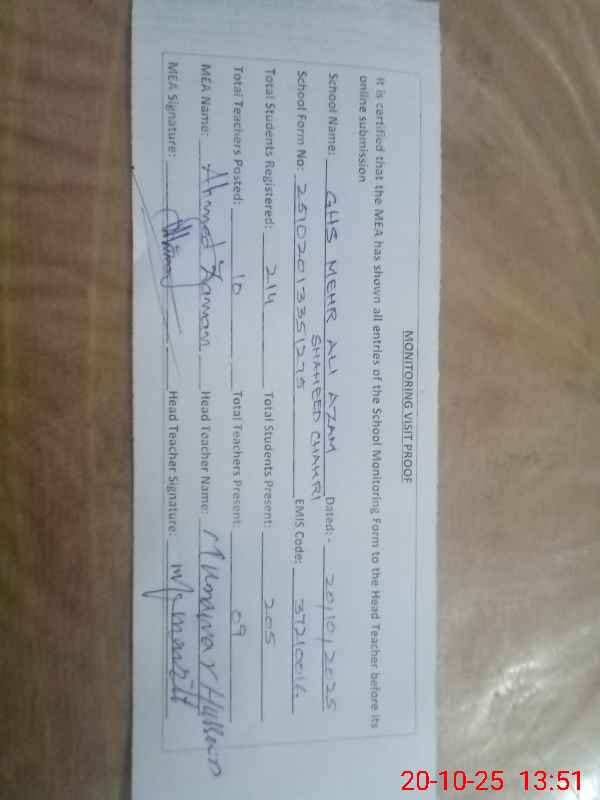 MONITORING VISIT PROOF
It is certified that the MEA has shown all entries of the School Monitoring Form to the Head Teacher before its
online submission
School Name: GHS MEHR ALI AZAM Dated:- 20,10,2025
SHAHEED CHAKRI
School Form No: 25102013351275 EMIS Code: 37210016
Total Students Registered: 214 Total Students Present: 205
Total Teachers Posted: 10 Total Teachers Present: 09
MEA Name: Ahmed Head Teacher Name: Munawar Hussain
MEA Signature: Head Teacher Signature:
20-10-25 13:51